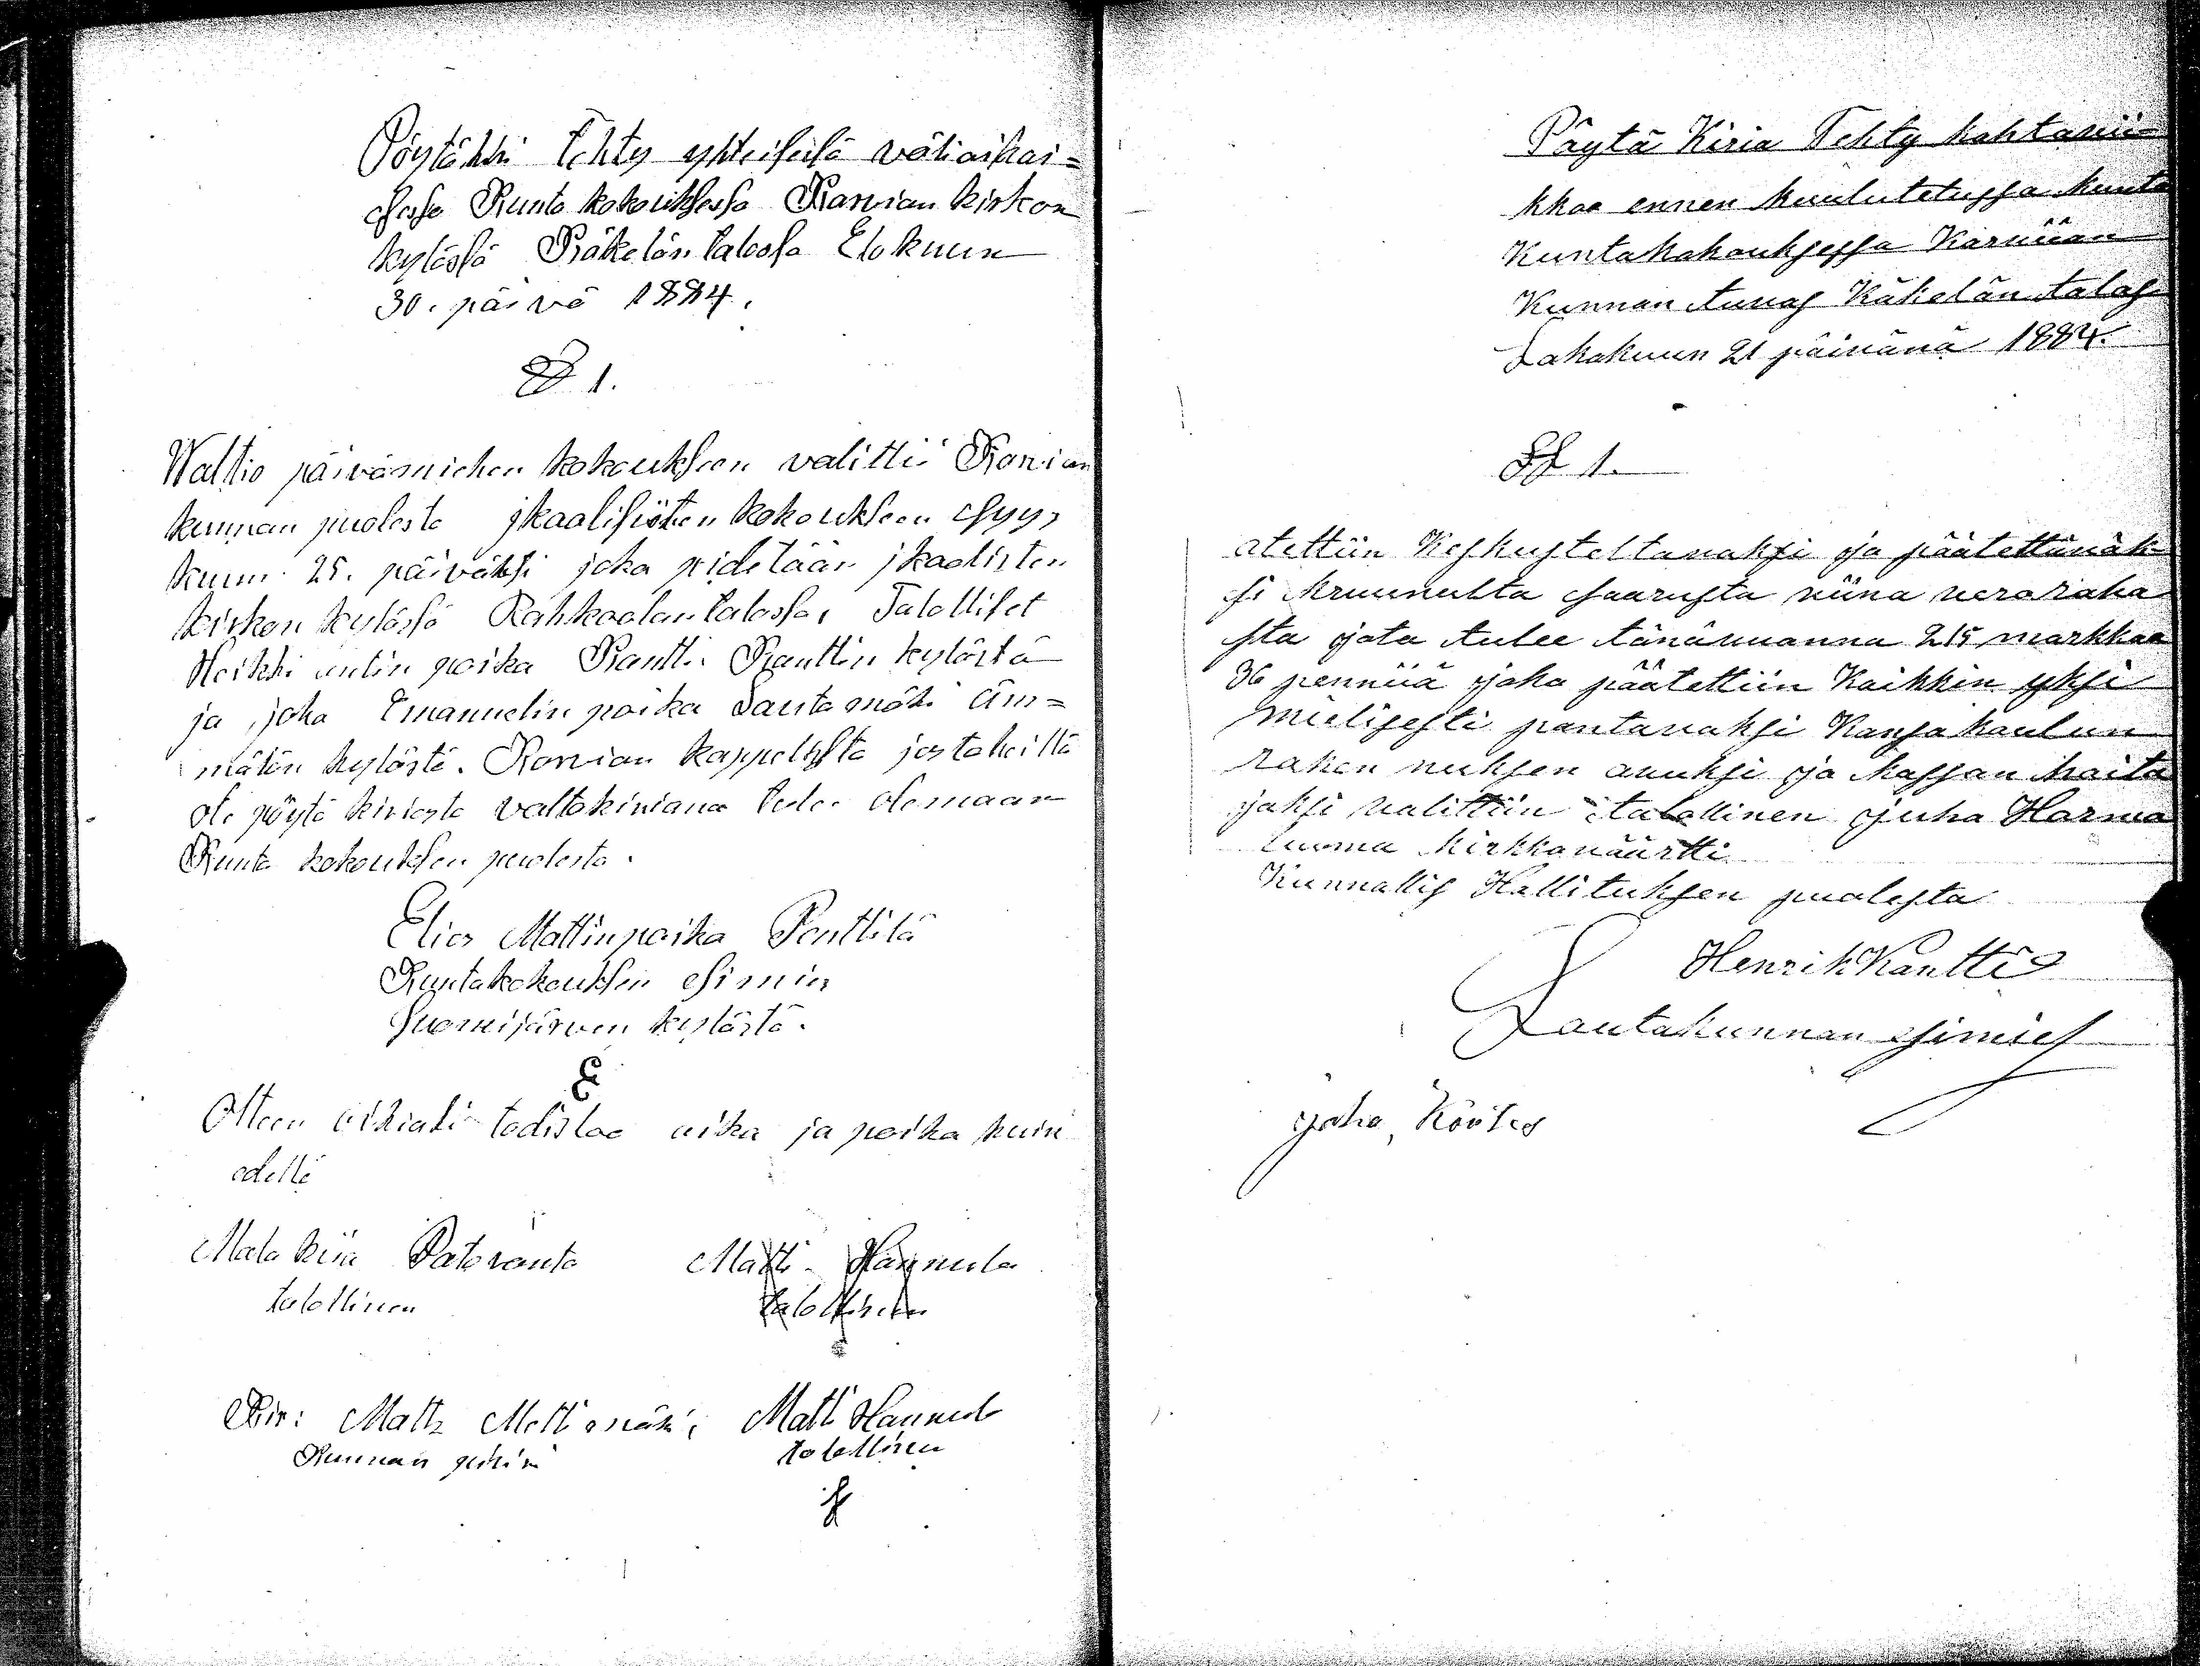 Pöytäkki Tehty yhteisesä väliaikai=
sessa Kunta kokouksessa Karvian kirkon
kylässä Käkelän talossa Elokuun
30. päivä 1884.
§ 1.
Waltio päivämiehen kokoukseen valittii Karvian
kunnan puolesta jkaalisisten kokoukseen Syys
kuun 25. päiväksi joka pidetään jkaalisten
kirkon kylässä Rahkoolan talossa, Talolliset
Heikki antin poika Kantti Kanttin kylästä
ja joha Emanuelin poika Santamäki Äm=
mälän kylästä. Karvian kappelista josta heillä
ole pöytä kiriasta valtakiriana tulee olemaan
Kunta kokouksen puolesta.
Elias Mattinpoika Penttilä
Kuntakokouksen esimies
Suomijärven kylästä.
Otteen oikiaksi todistaa aika ja paika kuin
edellä
Malakiia Patoranta Matti Hannula
talollinen talollinen
Kir: Matts Mattinmäki, Matti Hannula
Kunnan talollinen
Päytä Kiria Tehty kahtavii
kkoa ennen kuulutetussa kunta
Kuntakokouksessa Karviian
Kunnan tuvas Käkelän talos
Lokakuun 21 päivänä 1884.
§§ 1.
otettiin Keskusteltavaksi ja päätettäväk
si kruunulta saarusta viina veroraha
sta jota tulee tänävuonna 215 markkaa
36 penniiä joka päätettiin Kaikkin yksi
mielisesti pantavaksi Kansakoulun
raken nuksen avuksi ja kassan hoita
jaksi valittiin talollinen juha Harma
luoma kirkkonäärtti
Kunnallis Hallituksen puolesta
Henrik Kantti
Lautakunnan esimies
joha, Köötes